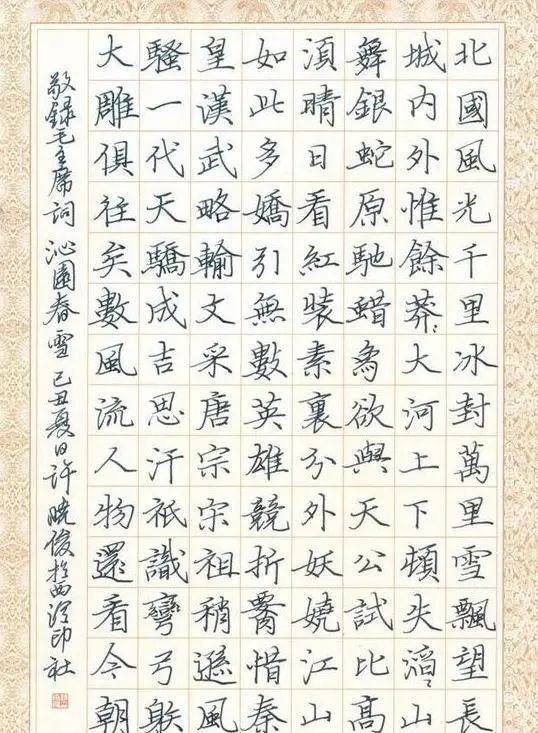 北國風光千里冰封萬里雪飄望長
城内外惟餘莽〻大河上下頓失滔〻山
舞銀蛇原馳蜡象欲與天公試比高
湏晴日看紅裝素裹分外妖嬈江山
如此多嬌引無數英雄競折腰惜秦
皇漢武略輸文采唐宗宋祖稍遜風
騷一代天驕成吉思汗祇識彎弓射
大雕俱往矣數風流人物還看今朝
敬録毛主席詞 沁園春雪 己丑夏日許曉俊於西泠印社